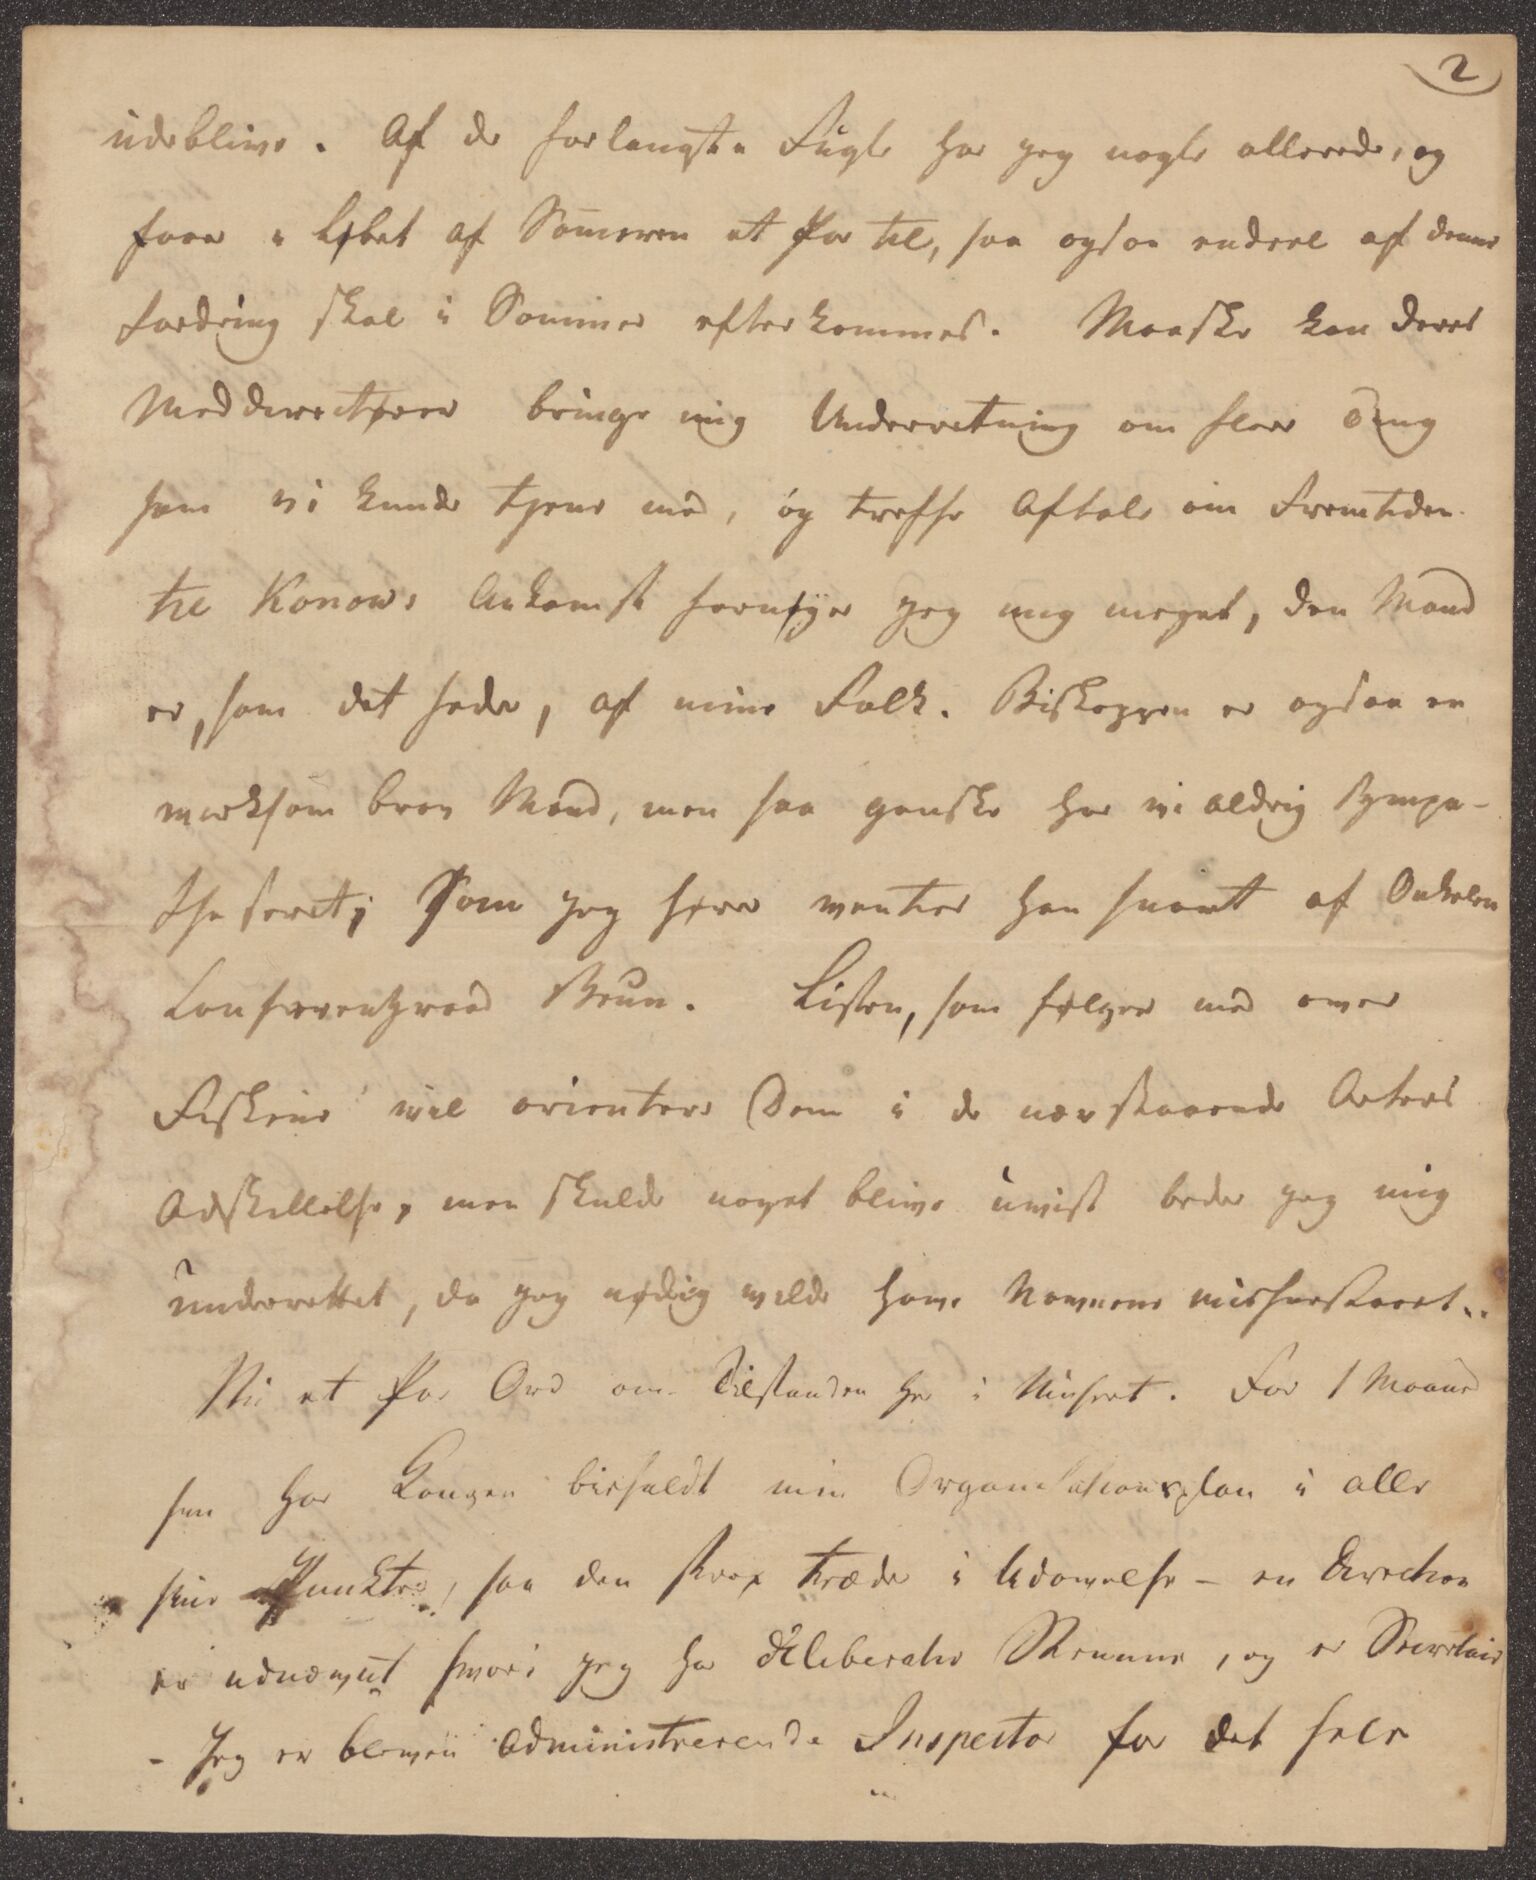 2
udeblive. Af de forlangte Fugle har jeg nogle allerede, og
faaer i Løbet af Som̄eren et Par til, saa ogsaa endeel af denne
fordring skal i Sommer efterkommes. Maaske kan deres
Meddirecteurer bringe mig Underretning om flere Ting
som vi kunde tjene med, og treffe Aftale om Fremtiden.
til Konows Ankomst fornøjer jeg mig meget, den Mand
er, som det heder, af mine Folk. Biskoppen er ogsaa en
virksom brav Mand, men saa ganske har vi aldrig sympa-
thiseret; Som jeg hører venter han snart af Onkelen
Conferentzraad Brun. Listen, som følger med over
Fiskene vil orientere Dem i de nærstaaende Arters
Adskillelse, men skulde noget blive uvist beder jeg mig
underrettet, da jeg nødig vilde have Navnene misforstaaet..
Nu et Par Ord om Tilstanden her i Museet. For 1 Maaned
sen har Kongen bifaldt min Organisationsplan i alle
sine Punkter, saa den strax træder i Udøvelse – en Direction
er udnævnt hvori jeg har deliberativ Stemme, og er Secretair
– Jeg er bleven administrerende Inspector for det hele